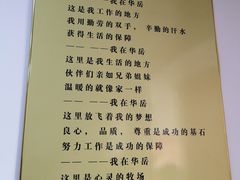 — ——我在华岳
这是我工作的地方
我用勤劳的双手，辛勤的汗水
获得生活的保障
— ——我在华岳
这里是我生活的地方
伙伴们亲如兄弟姐妹
温暖的就像家一样
— ——我在华岳
这里放飞着我的梦想
良心，品质，尊重是成功的基石
努力工作是成功的保障
— ——我在华岳
这里是心灵的牧场